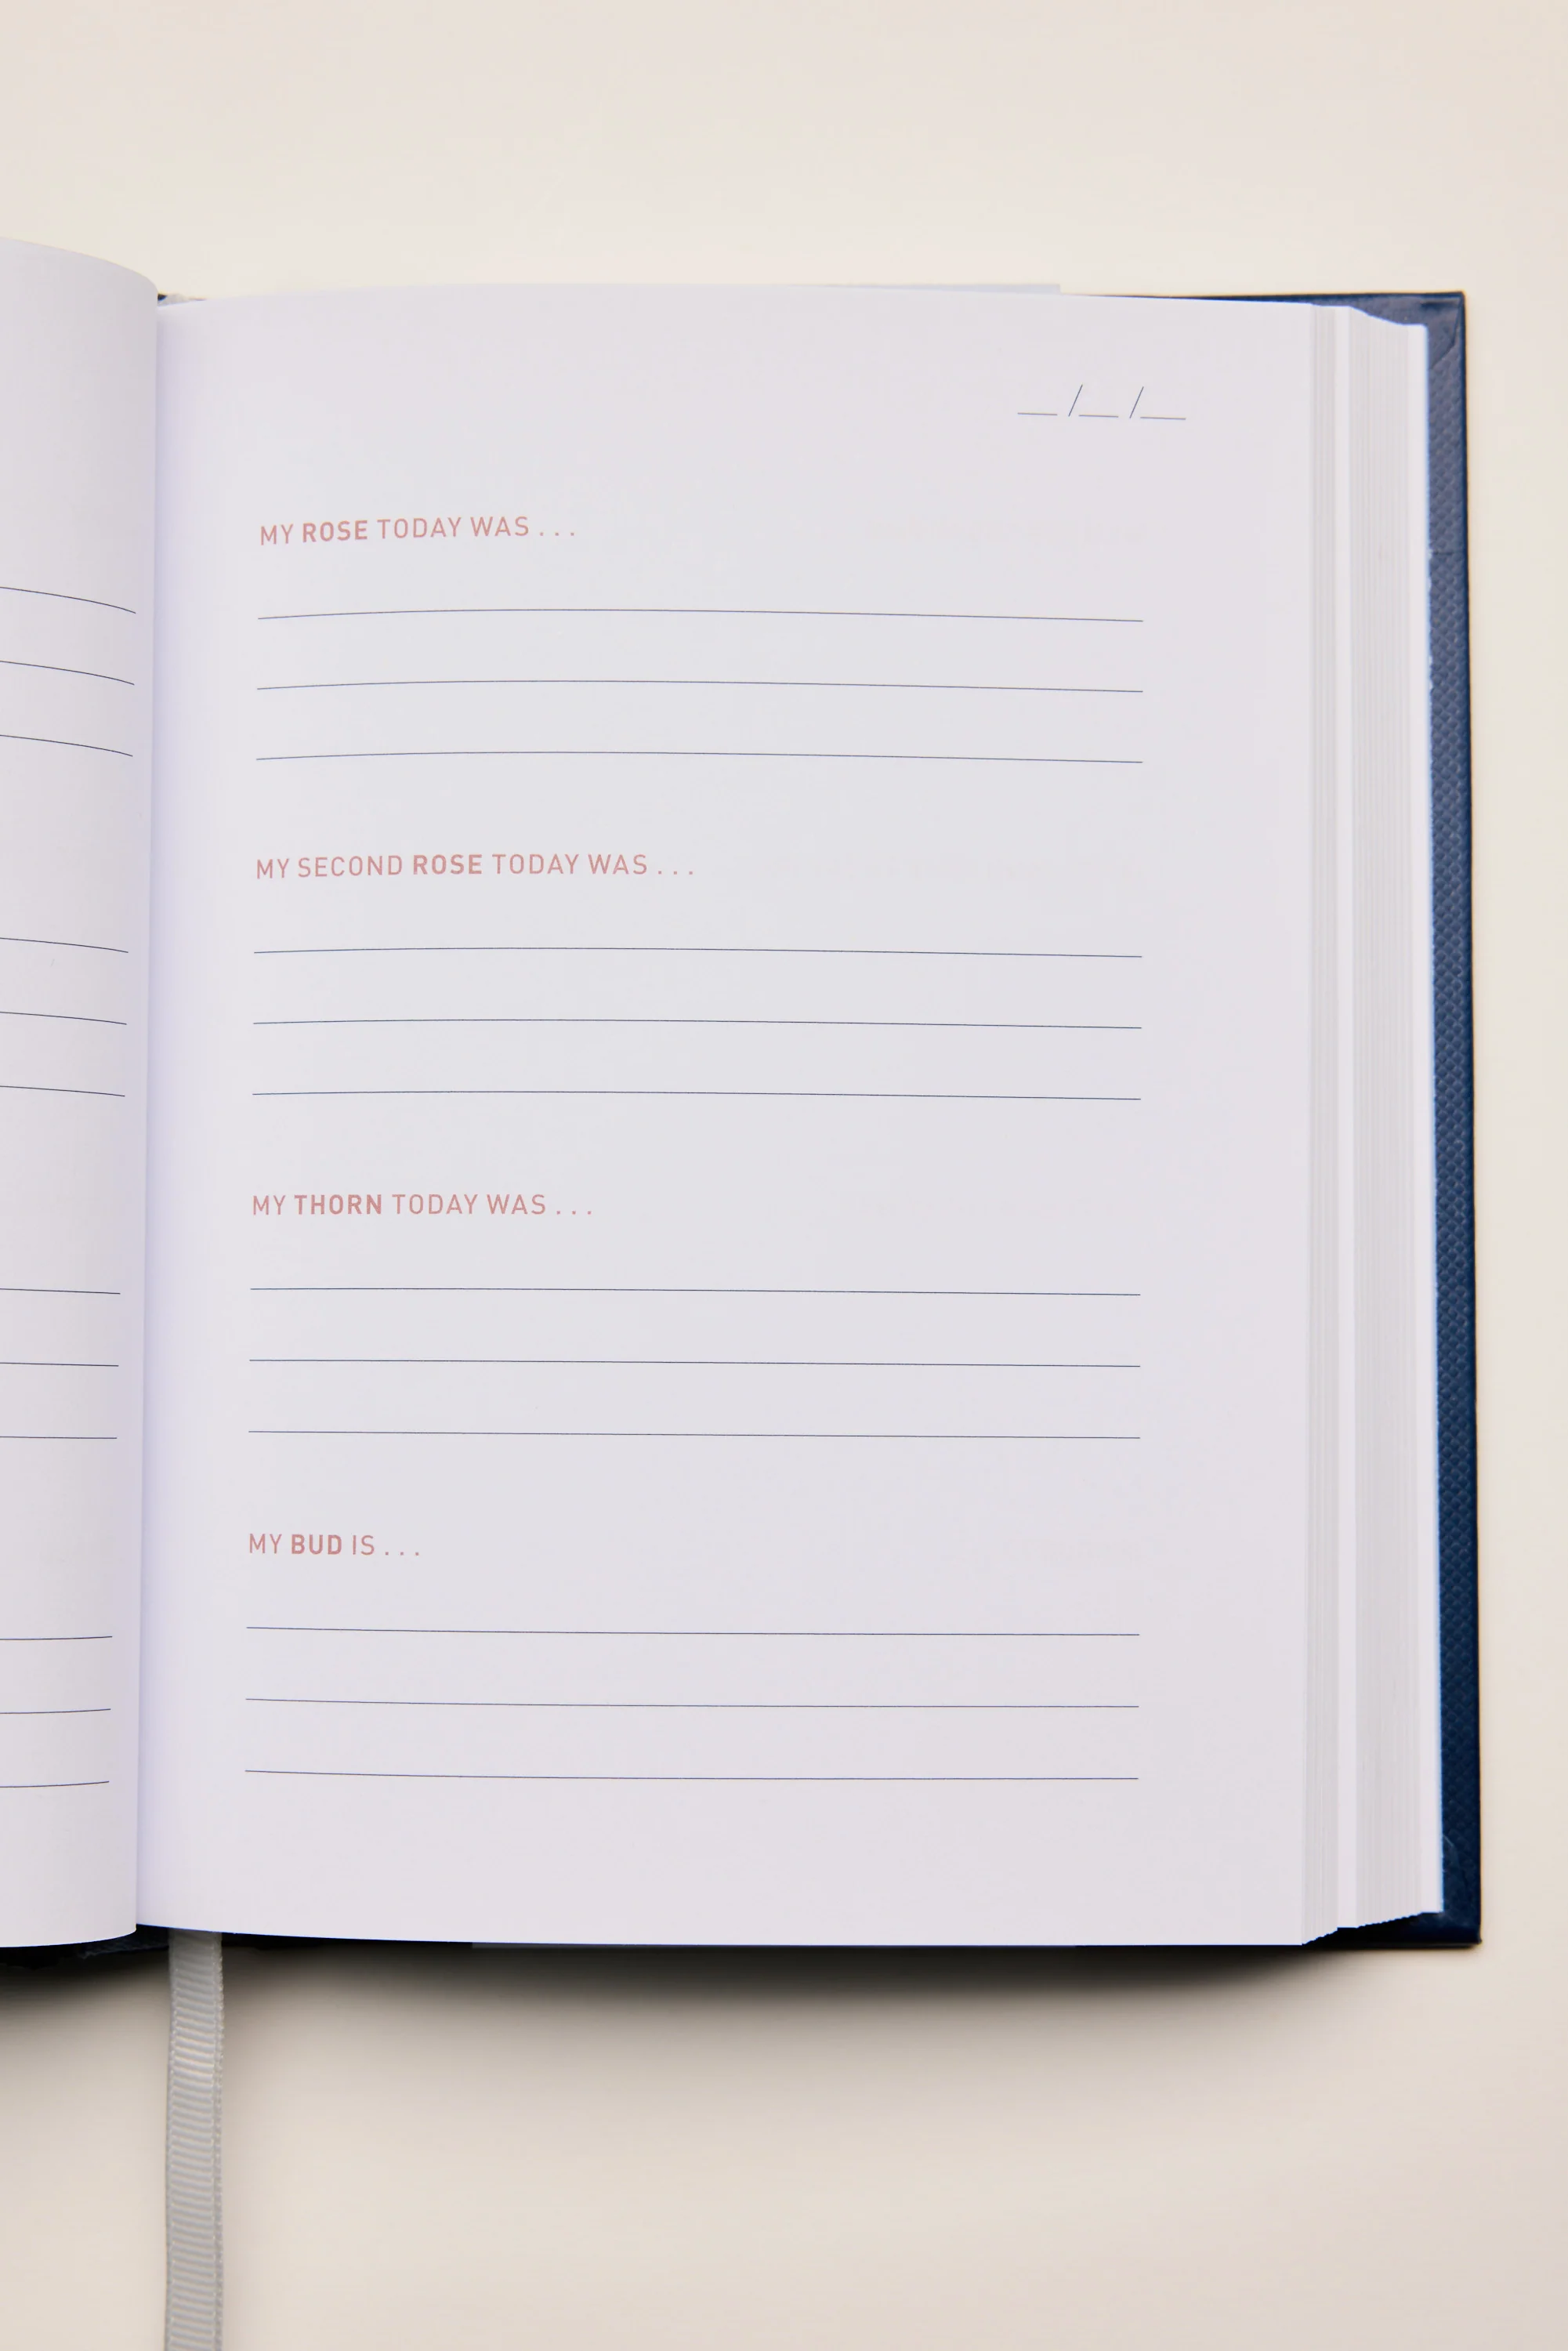 __ /__ /__
MY ROSE TODAY WAS . . .
MY SECOND ROSE TODAY WAS . . .
MY THORN TODAY WAS . . .
MY BUD IS . . .